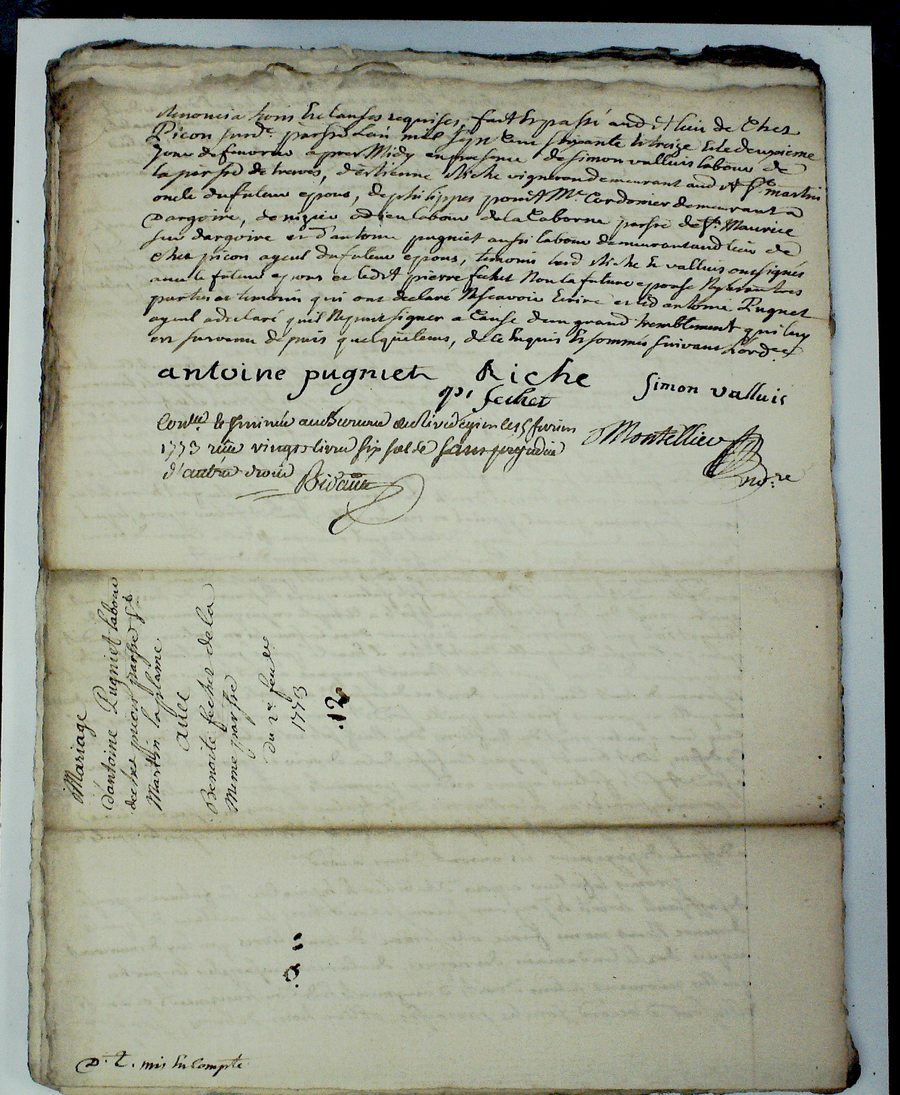 Renoncia tions Et Clauses requises, fait Et passé aud. lieu de Chez
Picon surd.e parsse Lan mil sept Cent soixante et treize Et le deuxieme
jour de fevrier apres Midy en presence de Simon valluis labour de
la parsse de treves, d'estienne Riche vigneron demeurant aud. St. martin
oncle du futeur epous, de philippes Cordonier demeurant a
Dargoire, de labour de la Caborne parsse de St. Maurice
sur dargoire et d'antoine pugniet aussi labour demeurant aud lieu de
Chez picon ayeul du futeur epous, temoins led Riche & valluis ont signés
avec le futeur epous et ledit pierre fechet Non la future epouse Ny
parties et temoins qui ont declaré Ne scavoir Ecrire et led antoine Pugniet
ayeul a declaré quil Ne peut signer a Cause dun grand tremblement qui luy
est survenu depuis quelque tems, de ce Enquis Et sommés suivant Lord.ce
antoine pugniet Riche Simon valluis
pi. fechet
Con.lé & au Bureau de Rivedegier le 15 fevrier
1773 reçu vingt livre six sol de sans prejudice
d'autre droit
Montellier
no.re
Mariage
d'antoine Pugniet labour
de chez picon parsse St.
Martin laplaine
avec
Benoite fechet de la
Meme parsse
du 2e. fevrier
1773
12
D. t. mis En Compte